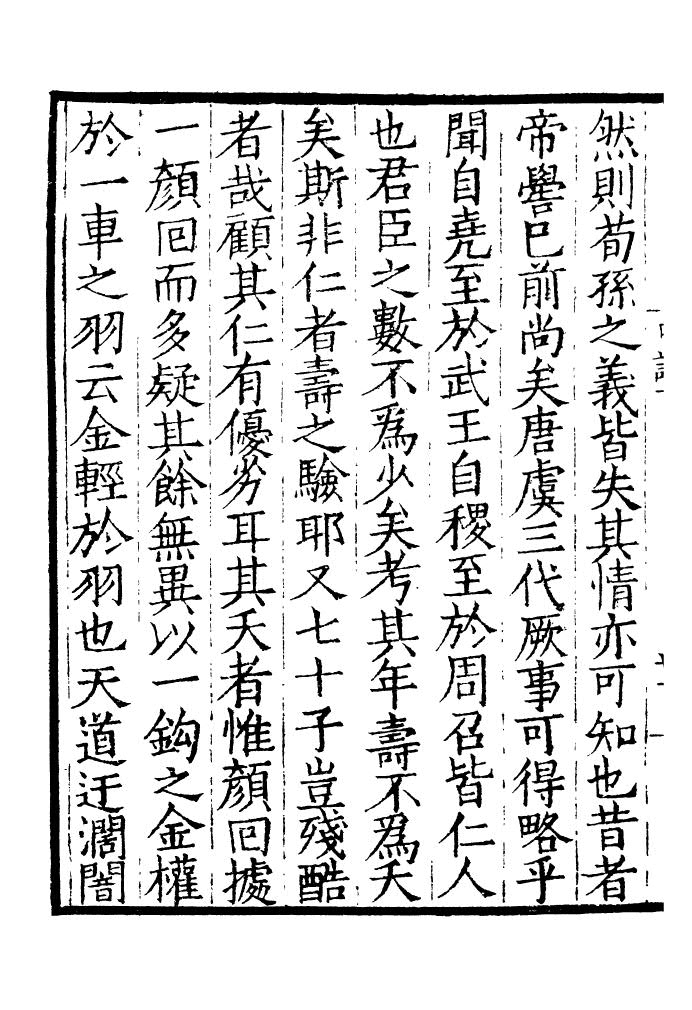 然則荀孫之義皆失其情亦可知也昔者
帝嚳已前尚矣唐虞三代厥事可得略乎
聞自堯至於武王自稷至於周召皆仁人
也君臣之數不為少矣考其年壽不為夭
矣斯非仁者壽之驗耶又七十子豈殘酷
者哉顧其仁有優劣耳其夭者惟顏回據
一顏回而多疑其餘無異以一鈎之金權
於一車之羽云金輕於羽也天道迂濶闇